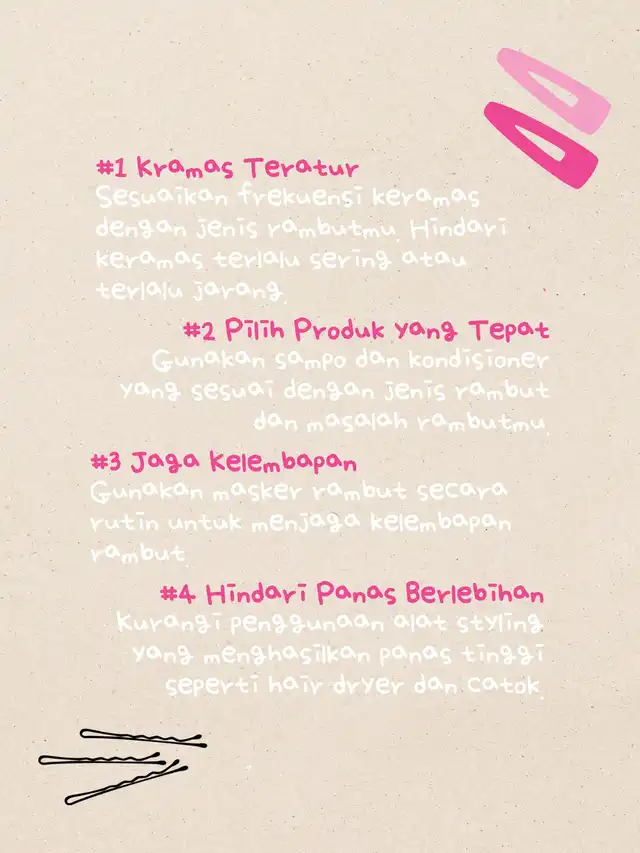 #1 Kramas Teratur
Sesuaikan frekuensi keramas
dengan jenis rambutmu. Hindari
keramas terlalu sering atau
terlalu jarang.
#2 Pilih Produk yang Tepat
Gunakan sampo dan kondisioner
yang sesuai dengan jenis rambut
dan masalah rambutmu.
#3 Jaga Kelembapan
Gunakan masker rambut secara
rutin untuk menjaga kelembapan
rambut.
#4 Hindari Panas Berlebihan
Kurangi penggunaan alat styling
yang menghasilkan panas tinggi
seperti hair dryer dan catok.